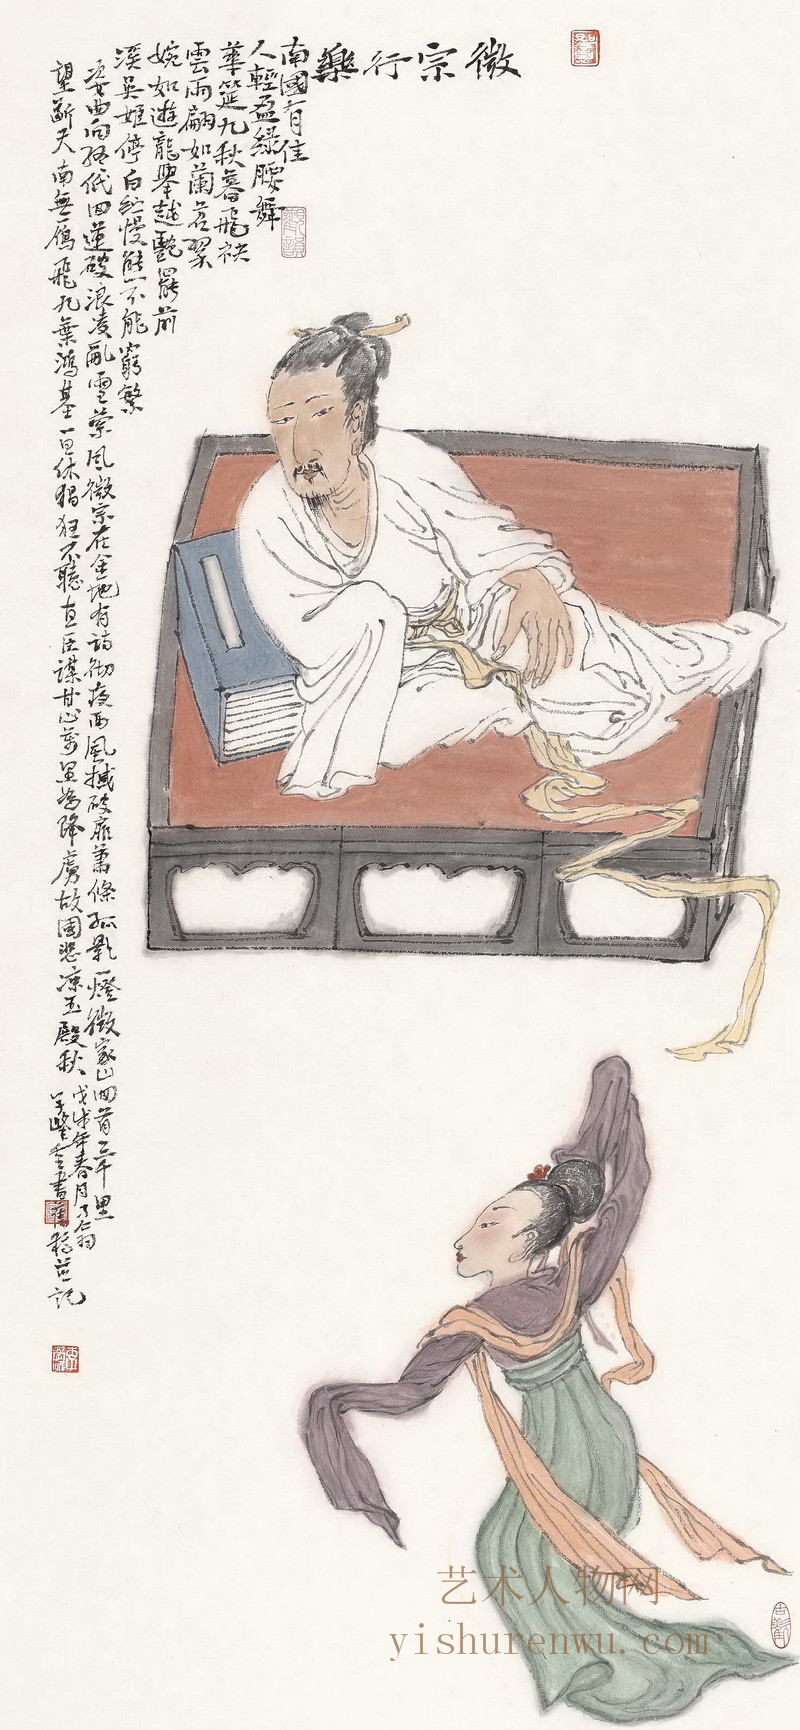 徽宗行樂
南國有佳
人輕盈綠腰舞
華筵九秋暮飛袂
雲雨翩如蘭苕翠
婉如遊龍舉越艷罷前
溪吳姬停白紵慢態不能窮繁
姿曲向終低回蓮破浪凌亂雪縈風徽宗在金地有詩徹夜西風撼破扉蕭條孤影一燈微家山回首三千里
望斷天南無雁飛九葉鴻基一旦休猖狂不聽直臣謀甘心萬里為降虜故國悲涼玉殿秋
戊戌年春月
書舊稿並記
艺术人物网
yishurenwu.com